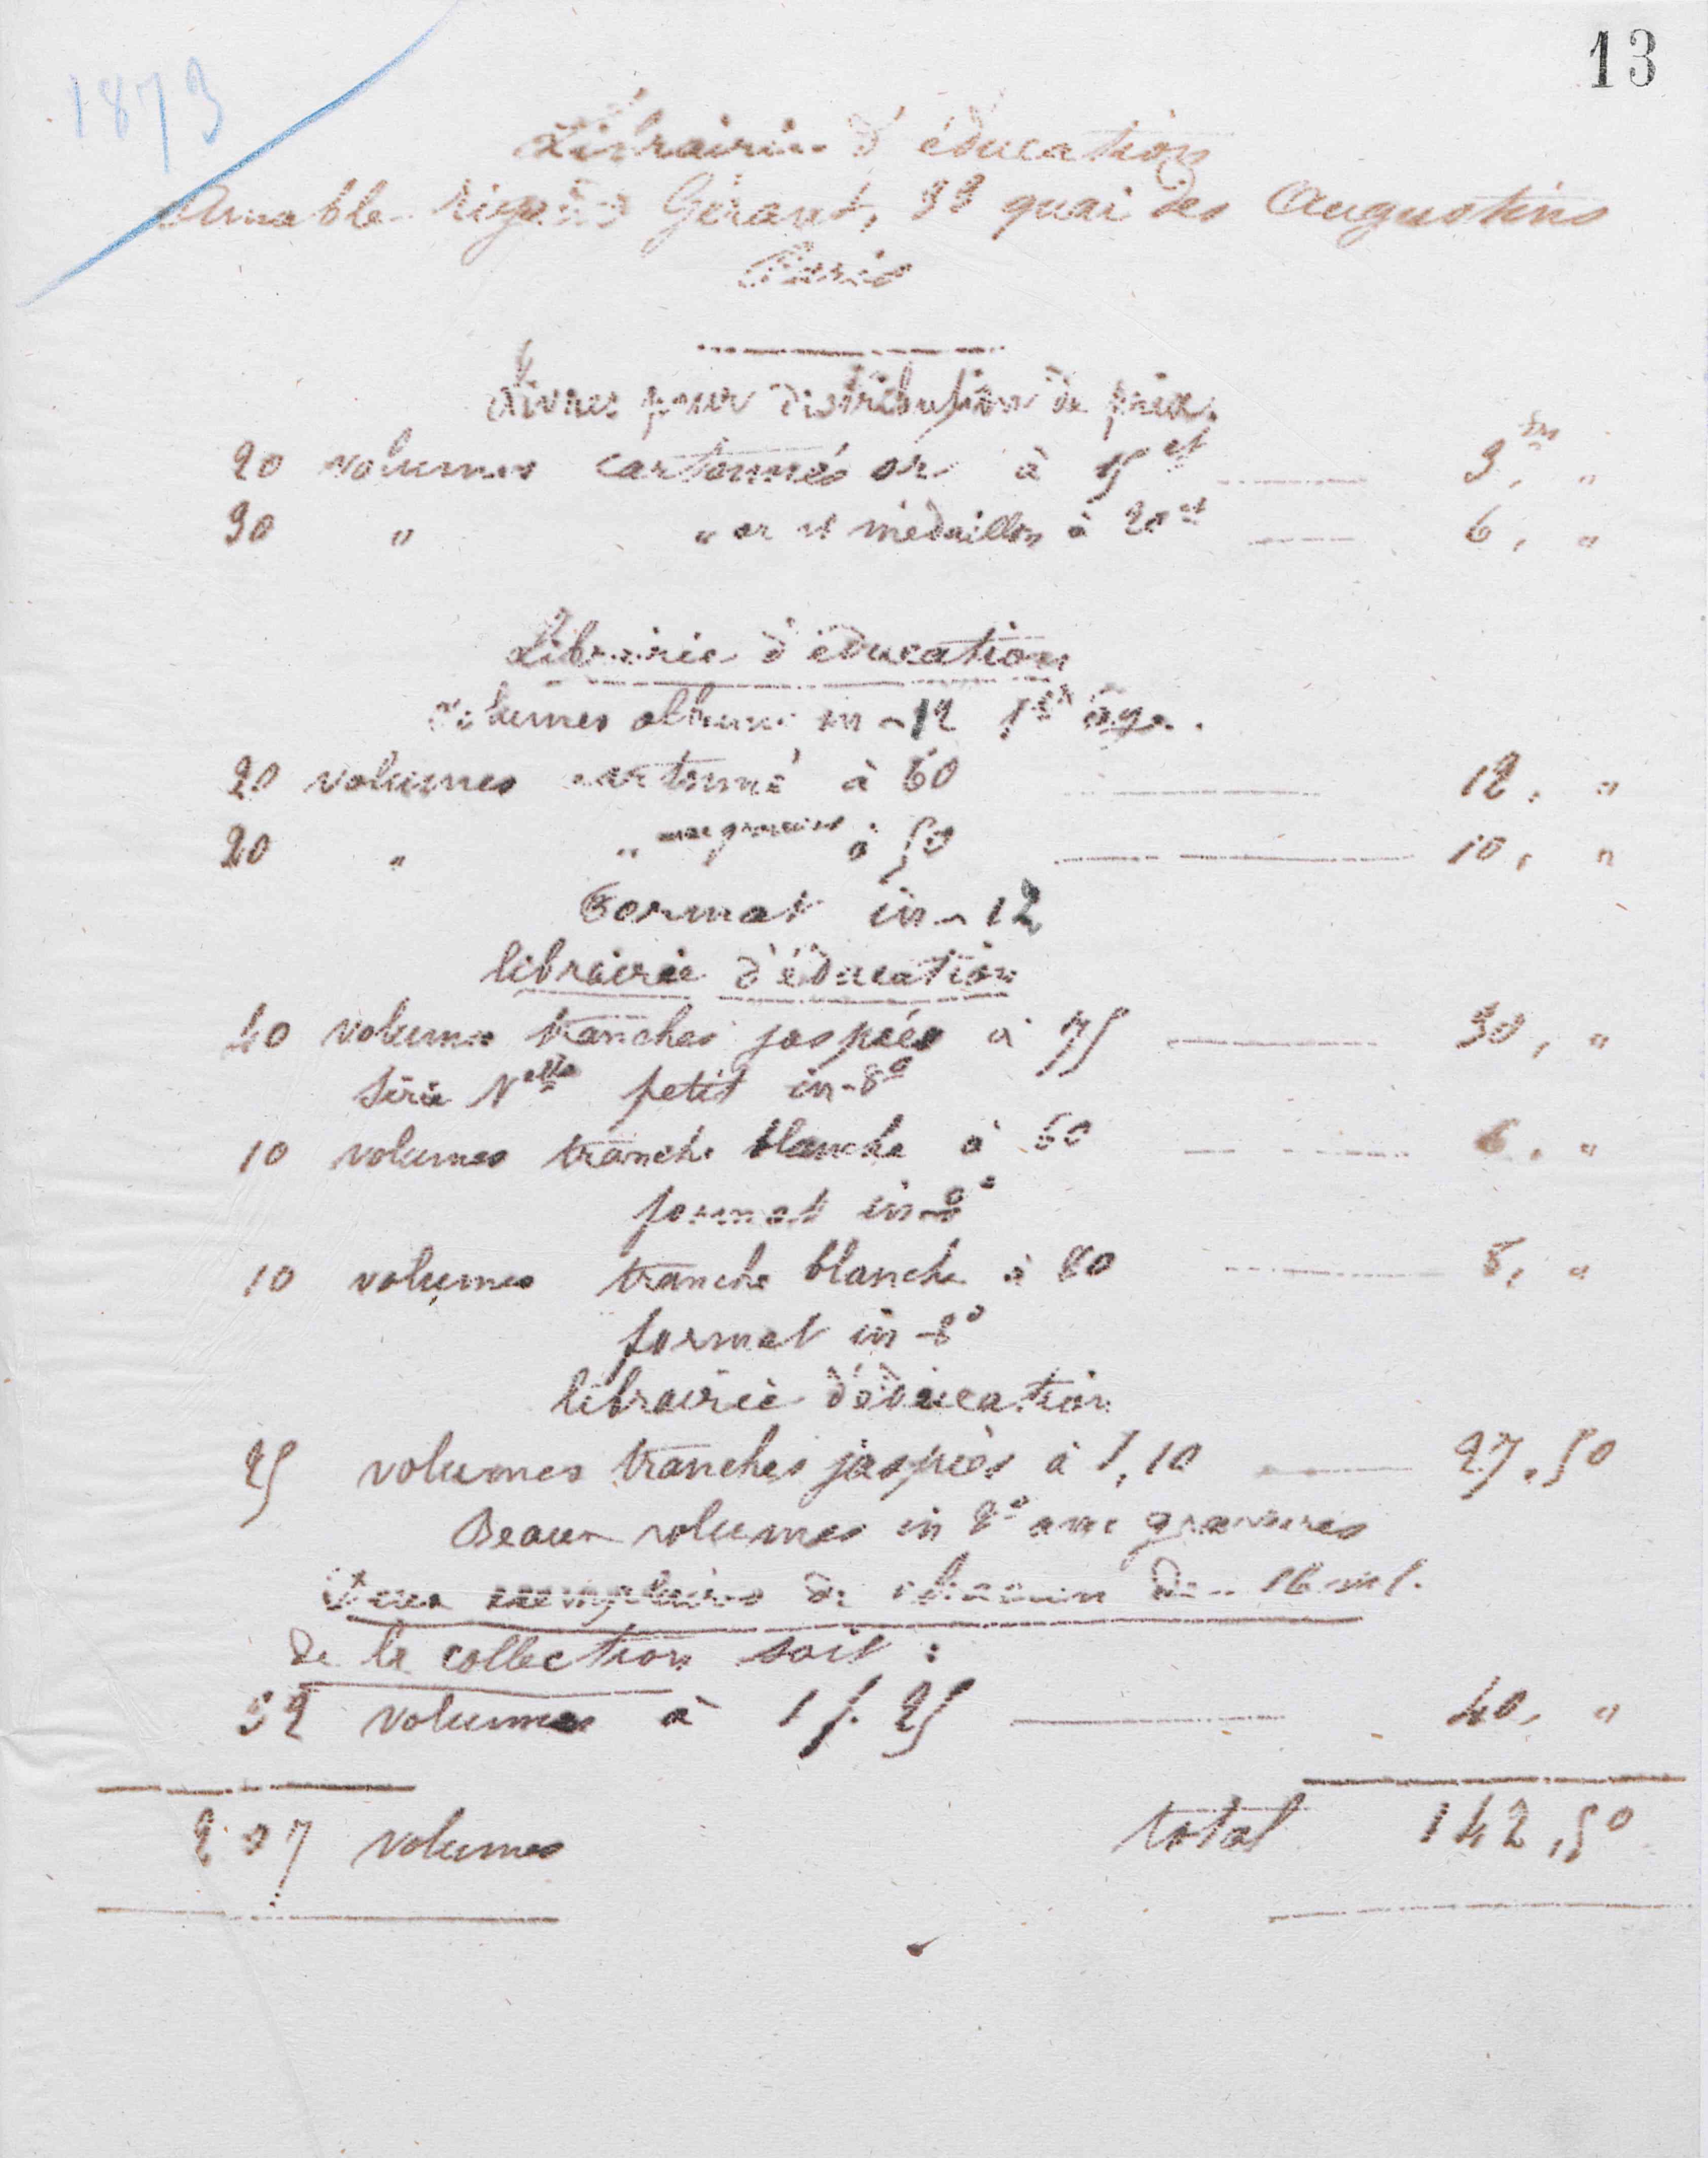 13
1873
Librairie d'éducation
Amable Rigaud Gérant, 33 quai des Augustins
Paris
Livres pour distribution de prix.
20 volumes cartonnés or à 15 ct 3, fr "
30 " " or et médaillon à 20 ct 6, "
Librairie d'éducation
volumes album in-12 1er âge.
20 volumes cartonné à 60 12, "
20 " " à 50 10, "
Format in-12
librairie d'éducation
40 volumes tranches jaspées à 75 30, "
Série Nelle petit in-8°
10 volumes tranche blanche à 60 6, "
format in-8°
10 volumes tranche blanche à 80 8, "
format in-8°
librairie d'éducation
25 volumes tranches jaspées à 1,10 27,50
Beaux volumes in 8° avec gravures
Deux exemplaires de chacun des 16 vol.
de la collection soit :
32 volumes à 1 f. 25 40, "
207 volumes total 142,50